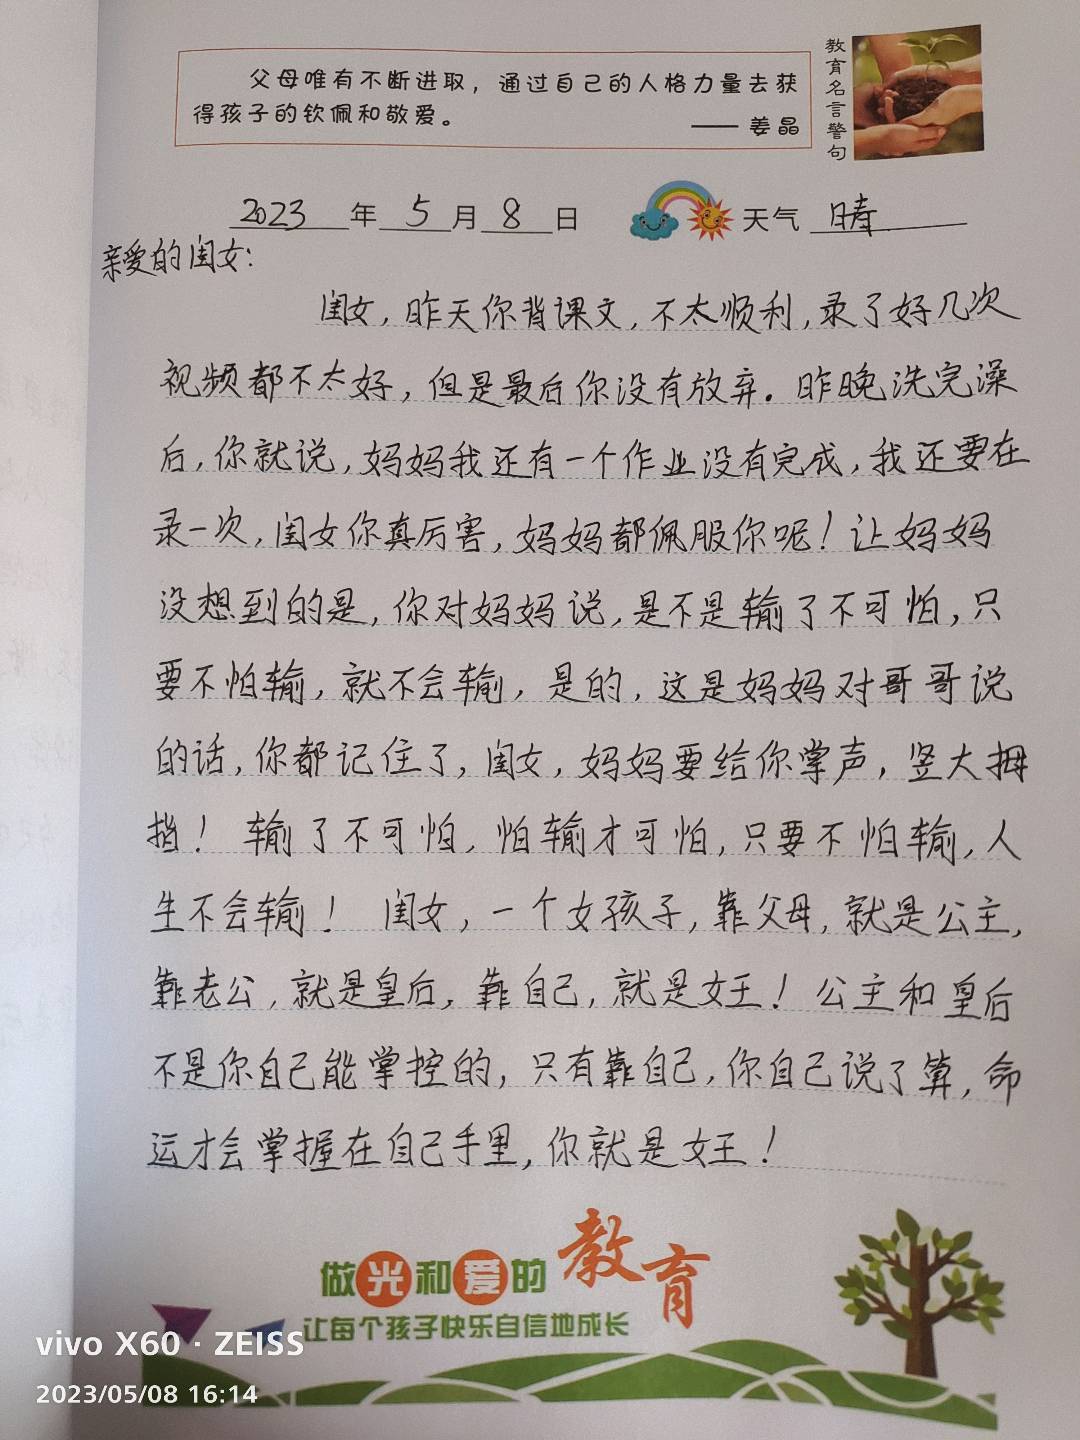 父母唯有不断进取，通过自己的人格力量去获
得孩子的钦佩和敬爱。
—— 姜晶
教育名言警句
2023年5月8日 天气 晴
亲爱的闺女：
闺女，昨天你背课文，不太顺利，录了好几次
视频都不太好，但是最后你没有放弃。昨晚洗完澡
后，你就说，妈妈我还有一个作业没有完成，我还要在
录一次，闺女你真厉害，妈妈都佩服你呢！让妈妈
没想到的是，你对妈妈说，是不是输了不可怕，只
要不怕输，就不会输，是的，这是妈妈对哥哥说
的话，你都记住了，闺女，妈妈要给你掌声，竖大拇
指！输了不可怕，怕输才可怕，只要不怕输，人
生不会输！闺女，一个女孩子，靠父母，就是公主，
靠老公，就是皇后，靠自己，就是女王！公主和皇后
不是你自己能掌控的，只有靠自己，你自己说了算，命
运才会掌握在自己手里，你就是女王！
做光和爱的教育
让每个孩子快乐自信地成长
vivo X60 · ZEISS
2023/05/08 16:14